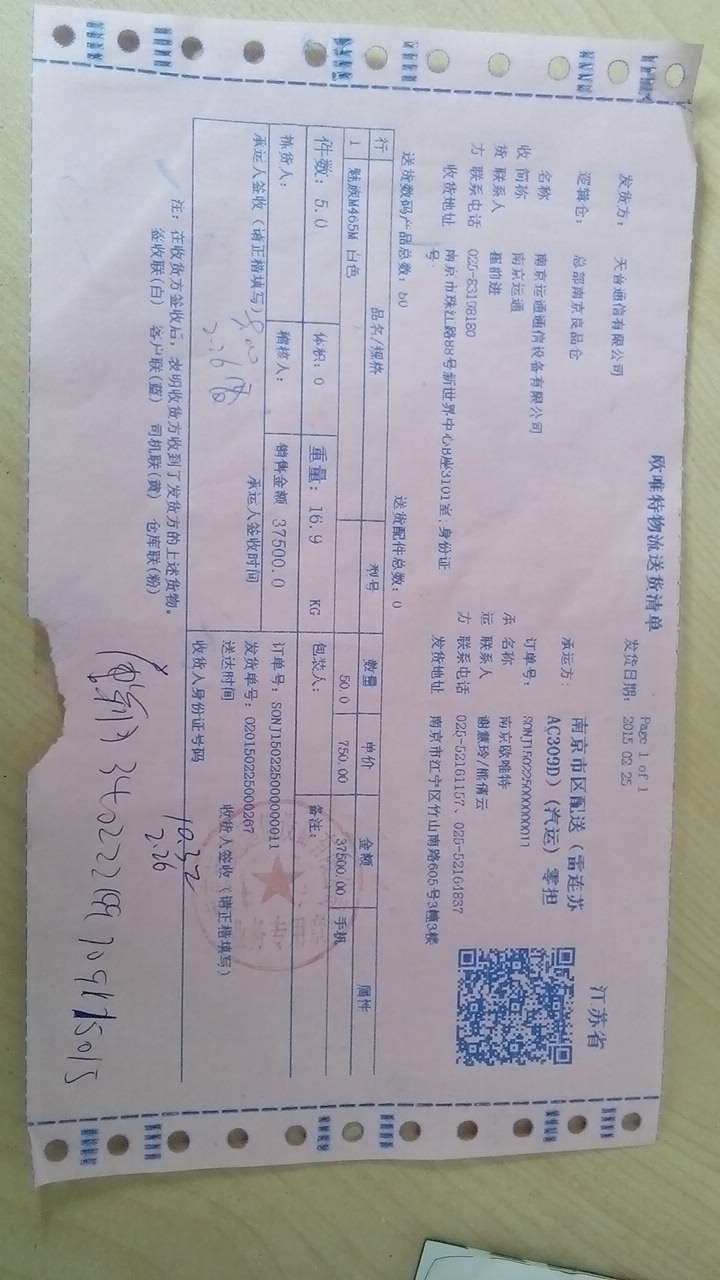 欧唯特物流送货清单
Page 1 of 1
发货方: 天音通信有限公司
发货日期: 2015 02 25
江苏省
逻辑仓: 总部南京良品仓
承运方: 南京市区配送(雷连苏
AC309D)(汽运)零担
名称 南京运通通信设备有限公司
订单号: SONJ150225000000011
收 简称 南京运通
承 名称 南京欧唯特
货 联系人 程前进
运 联系人 谢慧玲/熊倩云
方 联系电话 025-83198180
方 联系电话 025-52161157、025-52164837
收货地址 南京市珠江路88号新世界中心B座3101室.身份证
号:
发货地址 南京市江宁区竹山南路605号3幢3楼
送货数码产品总数: 50 送货配件总数: 0
行 品名/规格 型号 数量 单价 金额 属性
1 魅族M465M 白色 50.0 750.00 37500.00 手机
件数: 5.0 体积: 0 重量: 16.9 KG 包装人: 备注:
拣货人: 稽核人: 销售金额 37500.0
订单号: SONJ150225000000011
发货单号: 020150225000267
承运人签收(请正楷填写) 承运人签收时间
送达时间 收货人签收(请正楷填写)
2.26
收货人身份证号码
10.32
2.26
注: 在收货方签收后, 表明收货方收到了发货方的上述货物。
签收联(白) 客户联(蓝) 司机联(黄) 仓库联(粉)